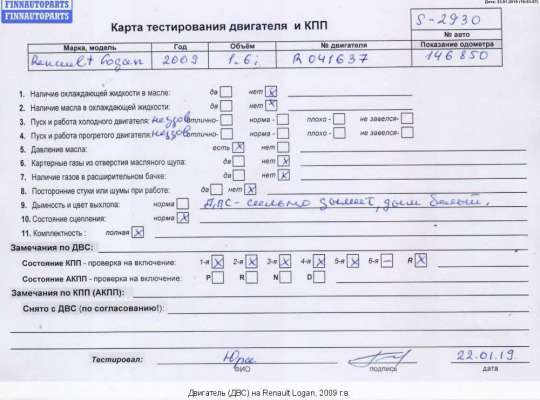 FINNAUTOPARTS
FINNAUTOPARTS
Карта тестирования двигателя и КПП
S-2930
№ авто
Марка, модель Год Объём № двигателя Показание одометра
Renault Logan 2009 1.6i R041637 146850
1. Наличие охлаждающей жидкости в масле: да нет X
2. Наличие масла в охлаждающей жидкости: да нет X
3. Пуск и работа холодного двигателя: отлично- норма - плохо - не завелся-
4. Пуск и работа прогретого двигателя: отлично- норма - плохо - не завелся-
5. Давление масла: есть X нет
6. Картерные газы из отверстия масляного щупа: да нет X
7. Наличие газов в расширительном бачке: да нет X
8. Посторонние стуки или шумы при работе: да нет X
9. Дымность и цвет выхлопа: норма ДВС - сильно дымит, дым белый.
10. Состояние сцепления: норма X
11. Комплектность : полная X
Замечания по ДВС:
Состояние КПП - проверка на включение: 1-я X 2-я X 3-я X 4-я X 5-я X 6-я - R X
Состояние АКПП - проверка на включение: P R N D
Замечания по КПП (АКПП):
Снято с ДВС (по согласованию!):
Тестировал: 22.01.19
ФИО подпись дата
Двигатель (ДВС) на Renault Logan, 2009 г.в.